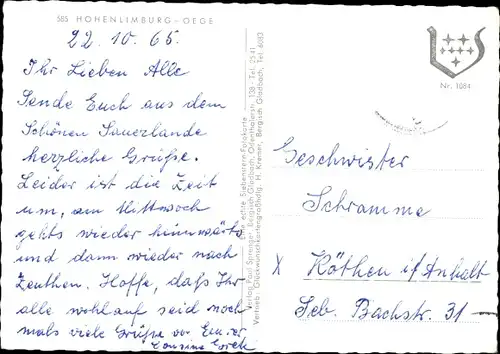 585 HOHENLIMBURG - OEGE
22.10.65
Ihr Lieben Alle
Sende Euch aus dem
Schönen Sauerlande
herzliche Grüße.
Leider ist die Zeit
um, am Mittwoch
gehts wieder heimwärts
und dann wieder nach
Zeuthen. Hoffe, daß Ihr
alle wohlauf seid noch
mals viele Grüße von Eurer
Cousine
echte Siebenstern-Fotokarte
Verlag Paul Springer, Bergisch Gladbach, 138 - Tel. 2541
Vertrieb: Glückwunschkartengroßhdlg. H. Kremer, Bergisch Gladbach, Tel. 6083
Nr. 1084
Geschwister
Schramme
X Köthen i/Anhalt
Seb. Bachstr. 31